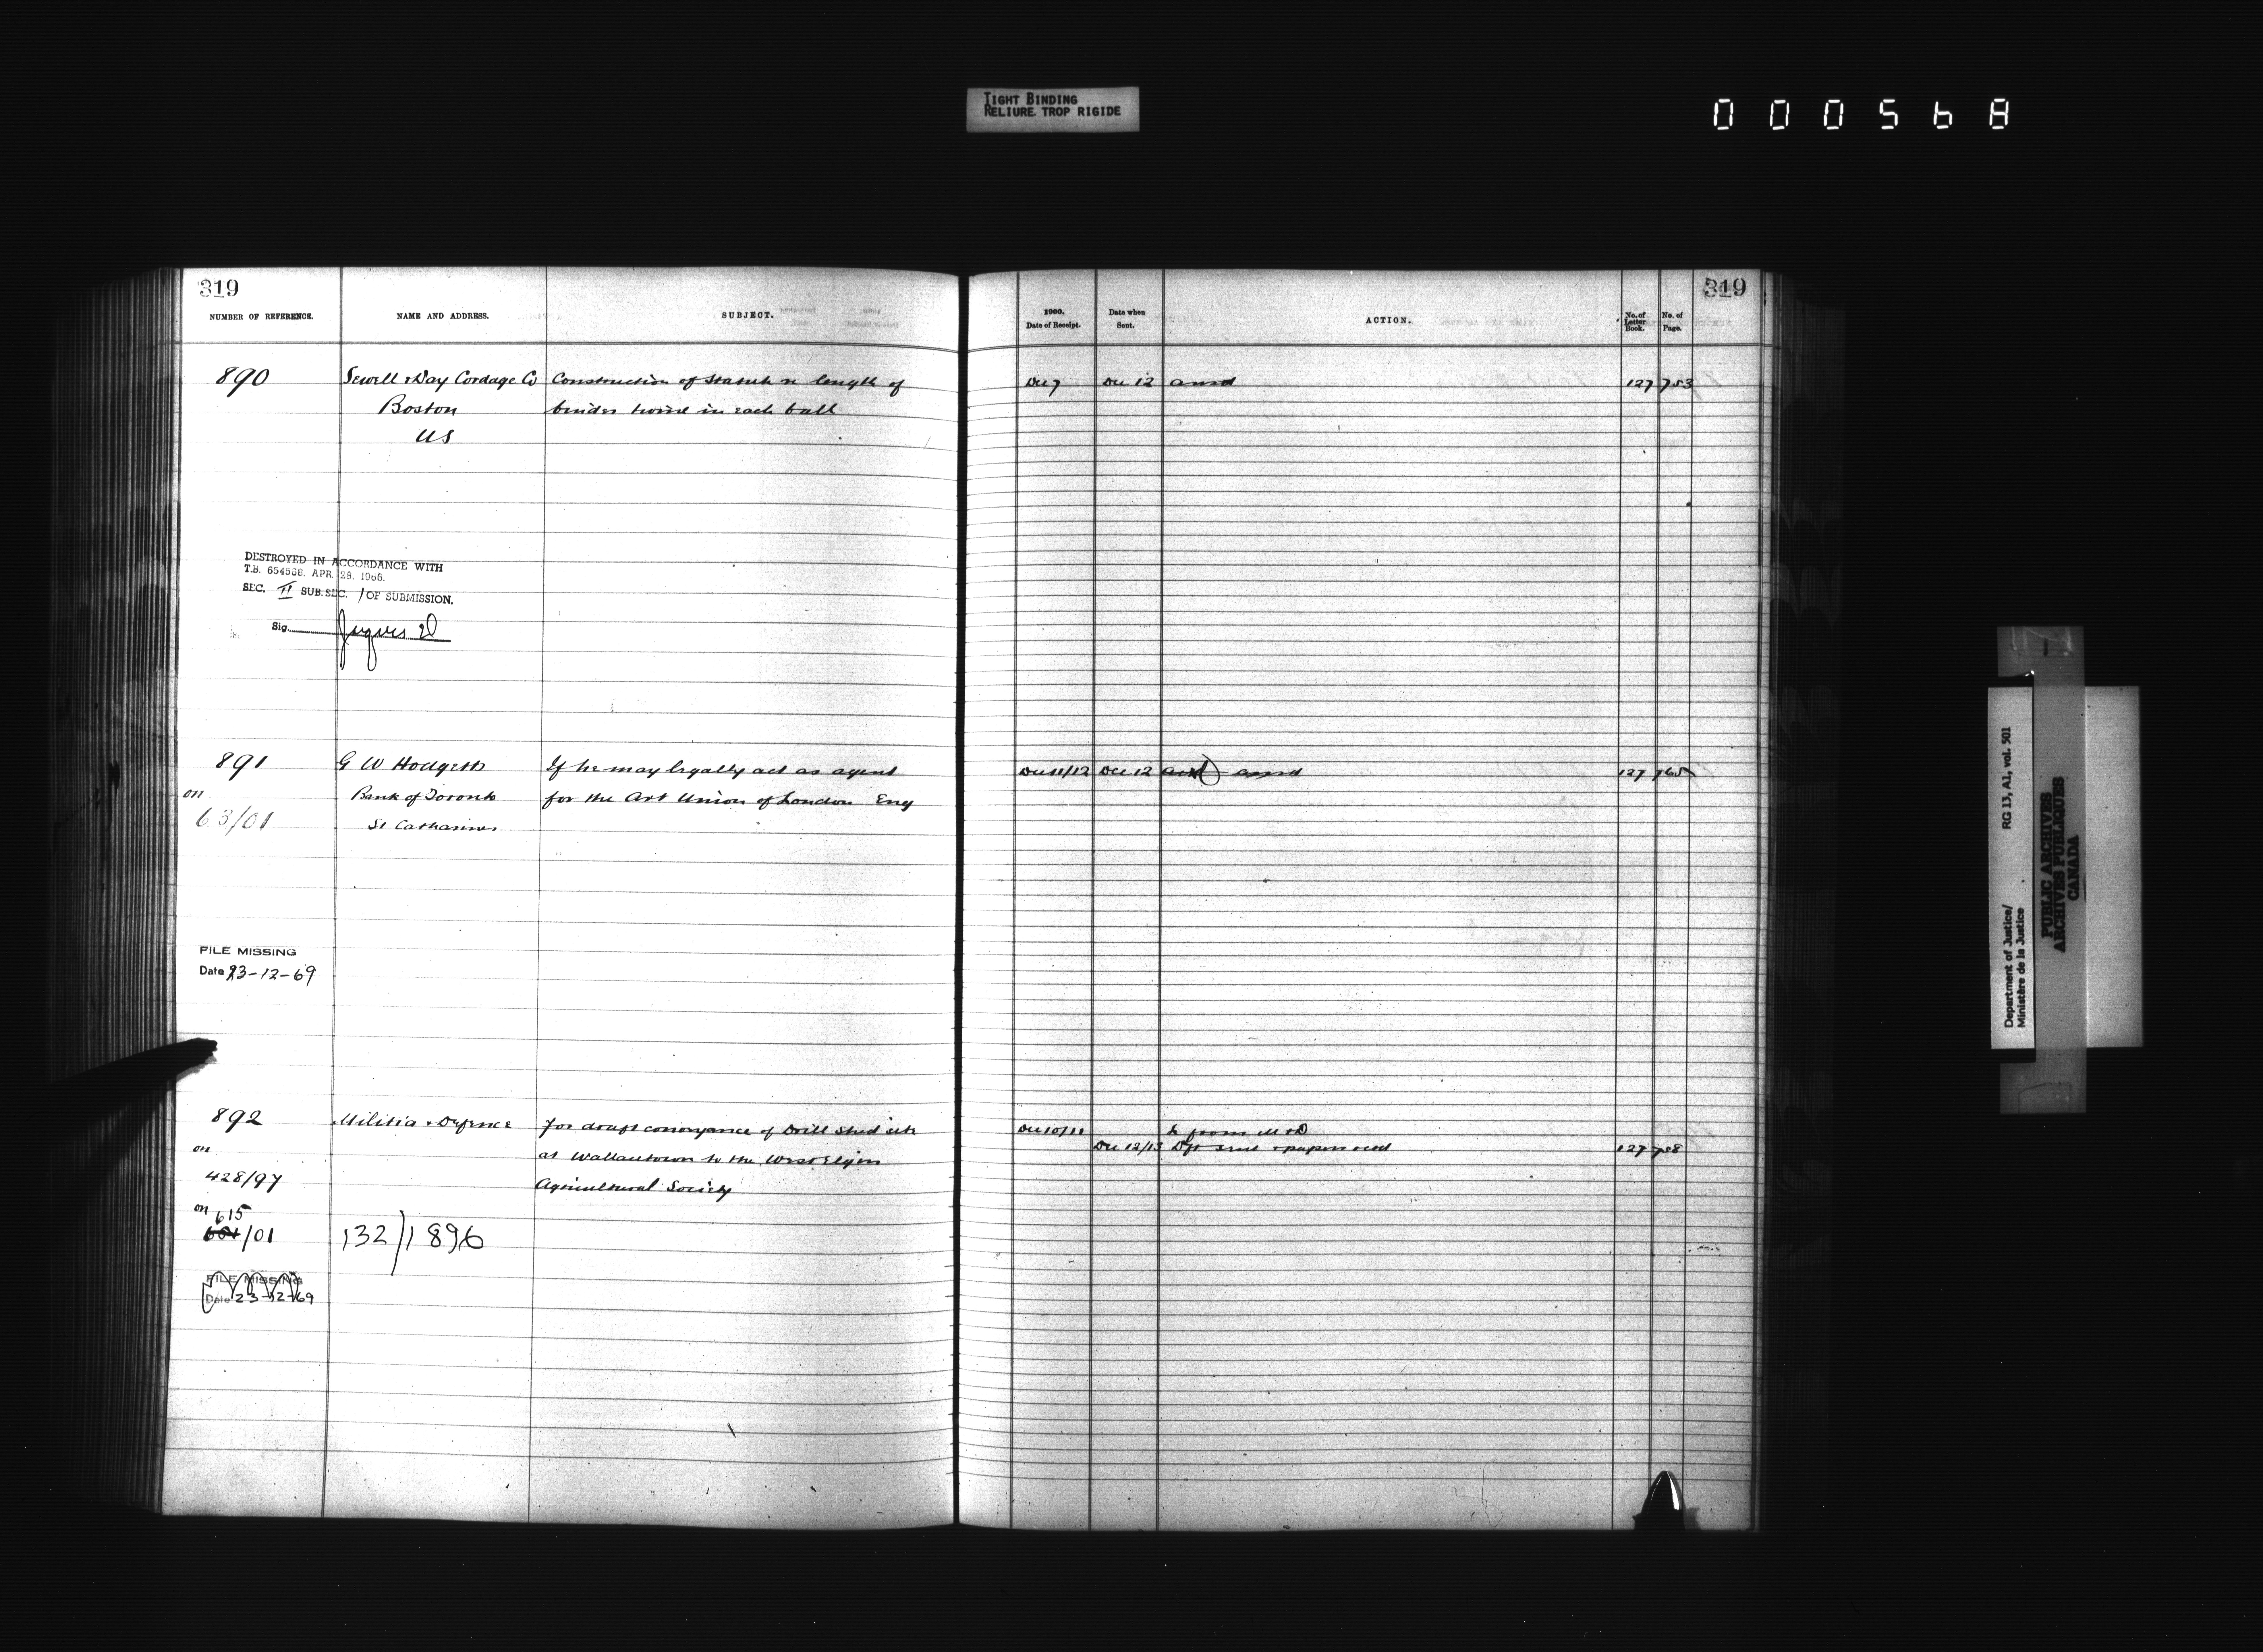 TIGHT BINDING
RELIURE TROP RIGIDE
000568
319
NUMBER OF REFERENCE.
NAME AND ADDRESS.
SUBJECT.
890
Sewell & Day Cordage Co
Boston
US
Construction of Statute re length of
binder twine in each ball
DESTROYED IN ACCORDANCE WITH
T.B. 654538. APR. 28. 1966.
SEC. II SUB. SEC. 1 OF SUBMISSION.
Sig.
891
on
63/01
G W Hodgetts
Bank of Toronto
St Catharines
If he may legally act as agent
for the Art Union of London Eng
FILE MISSING
Date 23-12-69
892
on
428/97
on 615
/01
Militia & Defence
132/1896
for draft conveyance of Drill Shed site
at Wallacetown to the West Elgin
Agricultural Society
FILE MISSING
Date 23-12-69
319
1900.
Date of Receipt.
Date when
Sent.
ACTION.
No. of
Letter
Book.
No. of
Page.
Dec 7
Dec 12
ansd
127
753
Dec 11/12
Dec 12
ansd
127
765
Dec 10/11
L from M & D
Dec 12/13
Dft sent & papers retd
127
758
Department of Justice/
Ministère de la Justice
RG 13, A1, vol. 501
PUBLIC ARCHIVES
ARCHIVES PUBLIQUES
CANADA